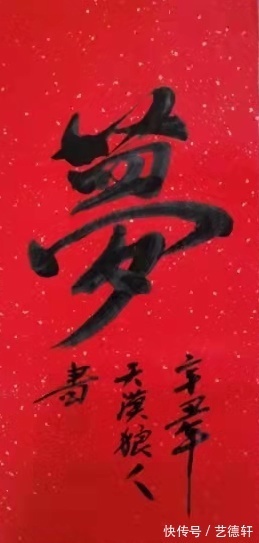 夢
辛丑年
天漠狼人
書
快传号 / 艺德轩